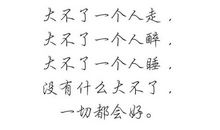 大不了一个人走，
大不了一个人醉，
大不了一个人睡，
没有什么大不了，
一切都会好。